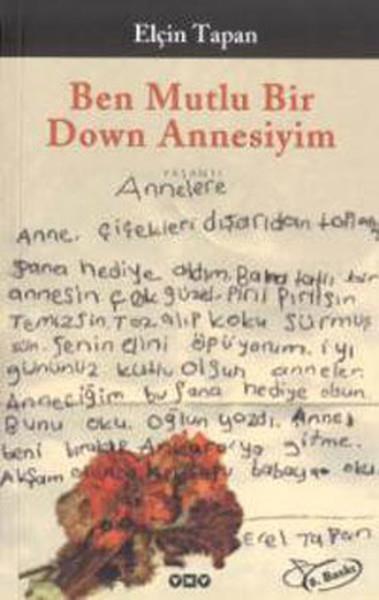 Elçin Tapan
Ben Mutlu Bir
Down Annesiyim
YAŞANTI
Annelere
Anne. çiçekleri dışarıdan
Şana hediye aldım. Bana tatlı bir
annesin çok güzel. Piril Pirilsin
Temizsin. Toz alıp koku sürmüş
sün. Şenin elini öpüyorum. iyi
gününüz kutlu olsun anneler
Anneciğim bu şana hediye olsun
Bunu oku. Oğlun yazdı. Anne
beni bırakıp Ankara'ya gitme.
Akşam babaya oku
Erel Tapan
YKY
8. Baskı